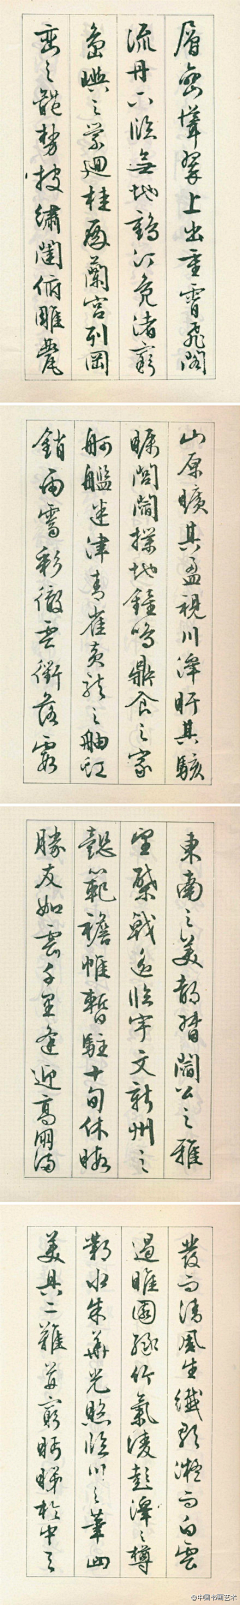 層巒聳翠上出重霄飛閣
流丹下臨無地鶴汀鳧渚窮
島嶼之縈迴桂殿蘭宮列岡
巒之體勢披繡闥俯雕甍
山原曠其盈視川澤盱其駭
矚閭閻撲地鐘鳴鼎食之家
舸艦迷津青雀黃龍之舳虹
銷雨霽彩徹雲衢落霞
東南之美都督閻公之雅
望棨戟遙臨宇文新州之
懿範襜帷暫駐十旬休暇
勝友如雲千里逢迎高朋滿
發而清風生纖歌凝而白雲
遏睢園綠竹氣凌彭澤之樽
鄴水朱華光照臨川之筆四
美具二難并窮睇眄於中天
@中国书画艺术